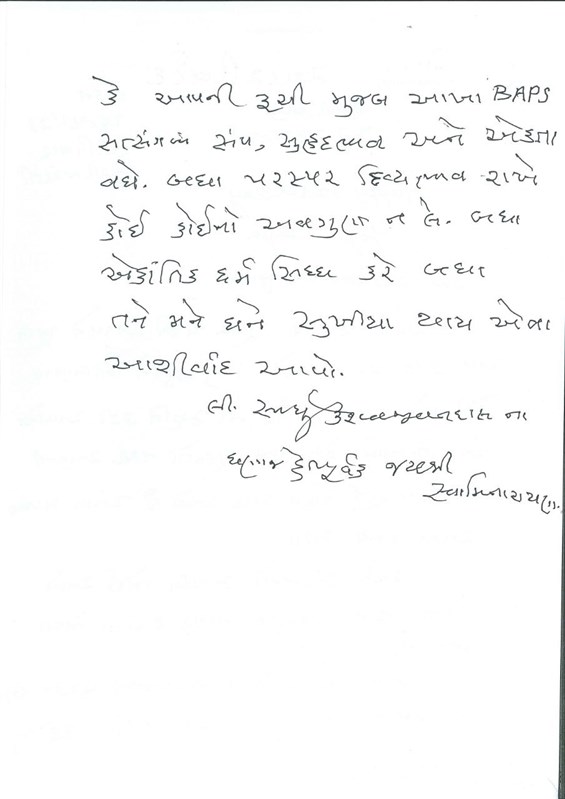 કે આપની રૂચી મુજબ આખા BAPS
સત્સંગમાં સંપ, સુહૃદભાવ અને એકતા
વધે. બધા પરસ્પર દિવ્યભાવ રાખે
કોઈ કોઈનો અવગુણ ન લે. બધા
એકાંતિક ધર્મ સિધ્ધ કરે બધા
તને મને ધને સુખીયા થાય એવા
આશીર્વાદ આપો.
લી. સાધુ કેશવજીવનદાસ ના
ઘણાજ હેતપૂર્વક જયશ્રી
સ્વામિનારાયણ.